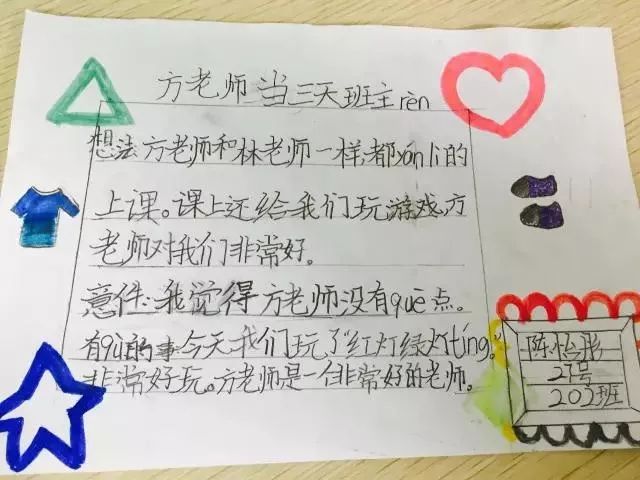 方老师当三天班主rèn
想法方老师和林老师一样,都sónlì的
上课。课上还给我们玩游戏,方
老师对我们非常好。
意件:我觉得方老师没有quē点。
有qù的事:今天,我们玩了“红灯绿灯tíng。”
非常好玩。方老师是一个非常好的老师。
陈怡彤
27号
202班